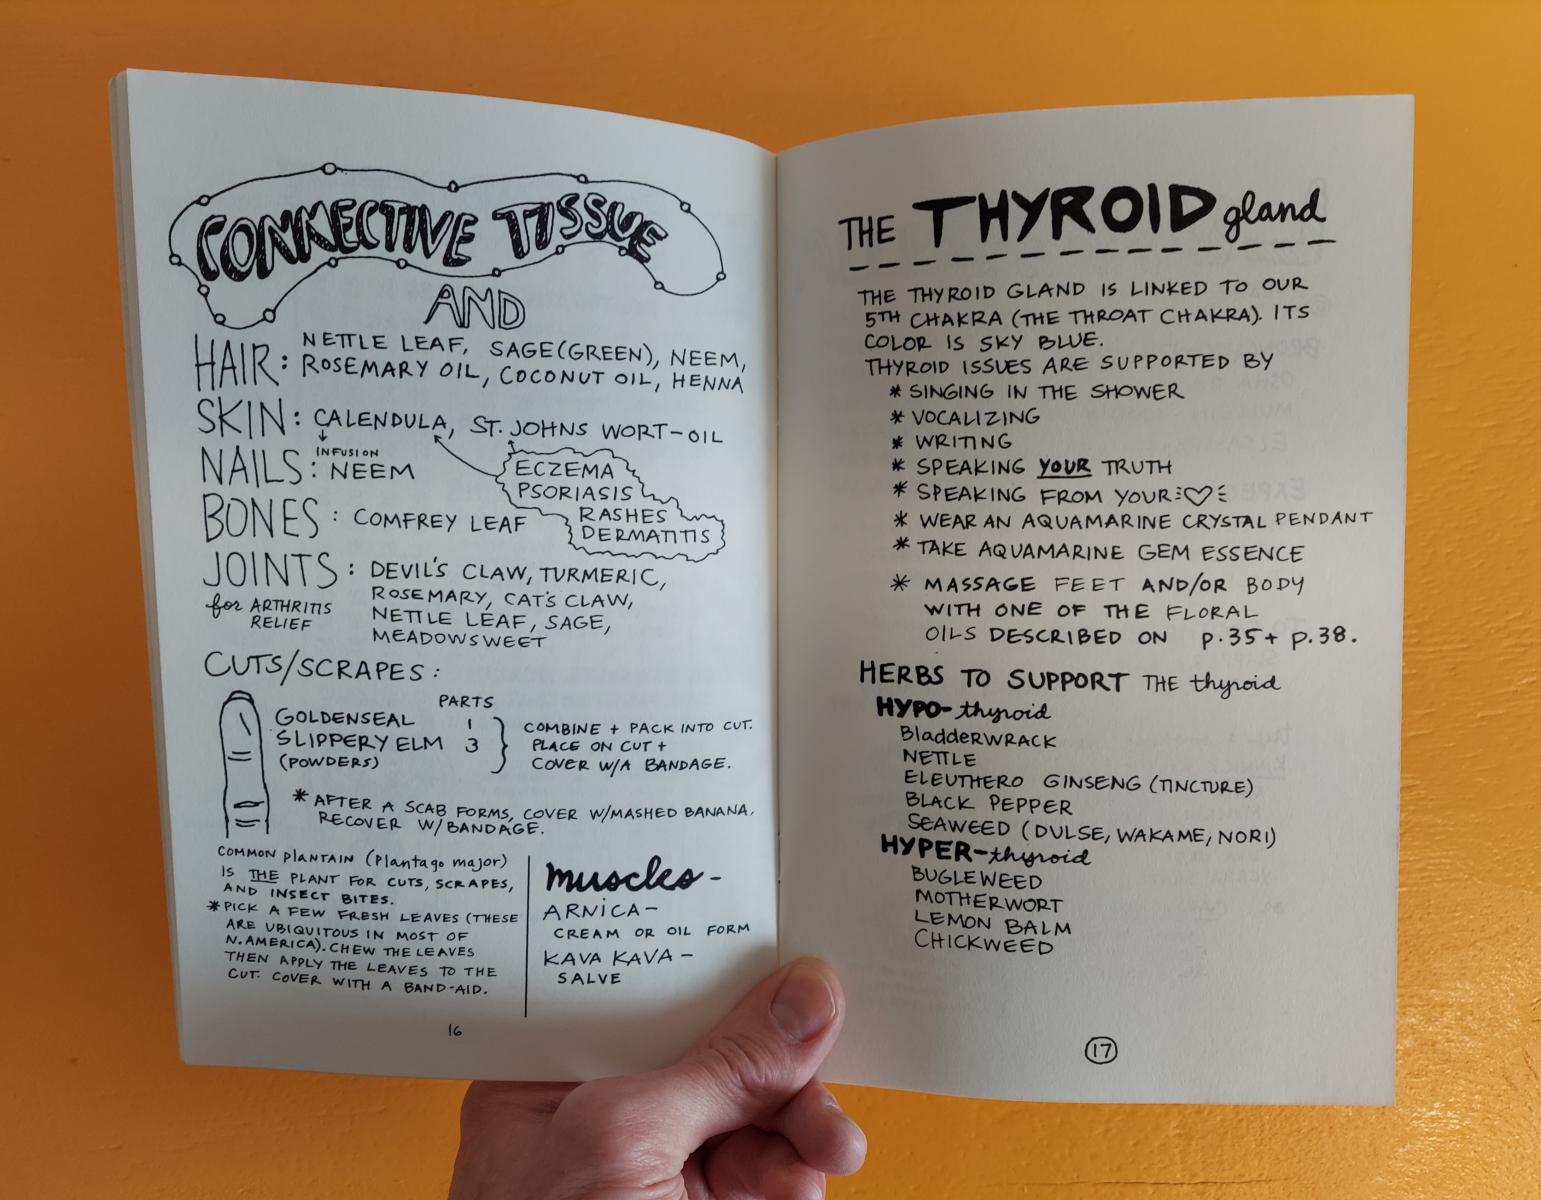 CONNECTIVE TISSUE
AND
HAIR: NETTLE LEAF, SAGE(GREEN), NEEM,
ROSEMARY OIL, COCONUT OIL, HENNA
SKIN: CALENDULA, ST. JOHNS WORT-OIL
INFUSION
NAILS: NEEM
ECZEMA
PSORIASIS
RASHES
DERMATITIS
BONES: COMFREY LEAF
JOINTS: DEVIL'S CLAW, TURMERIC,
for ARTHRITIS
RELIEF
ROSEMARY, CAT'S CLAW,
NETTLE LEAF, SAGE,
MEADOWSWEET
CUTS/SCRAPES:
PARTS
GOLDENSEAL 1
SLIPPERY ELM 3
(POWDERS)
COMBINE + PACK INTO CUT.
PLACE ON CUT +
COVER W/A BANDAGE.
* AFTER A SCAB FORMS, COVER W/MASHED BANANA,
RECOVER W/BANDAGE.
COMMON PLANTAIN (Plantago major)
IS THE PLANT FOR CUTS, SCRAPES,
AND INSECT BITES.
* PICK A FEW FRESH LEAVES (THESE
ARE UBIQUITOUS IN MOST OF
N. AMERICA). CHEW THE LEAVES
THEN APPLY THE LEAVES TO THE
CUT. COVER WITH A BAND-AID.
muscles-
ARNICA-
CREAM OR OIL FORM
KAVA KAVA-
SALVE
16
THE THYROID gland
THE THYROID GLAND IS LINKED TO OUR
5TH CHAKRA (THE THROAT CHAKRA). ITS
COLOR IS SKY BLUE.
THYROID ISSUES ARE SUPPORTED BY
* SINGING IN THE SHOWER
* VOCALIZING
* WRITING
* SPEAKING YOUR TRUTH
* SPEAKING FROM YOUR ♡
* WEAR AN AQUAMARINE CRYSTAL PENDANT
* TAKE AQUAMARINE GEM ESSENCE
* MASSAGE FEET AND/OR BODY
WITH ONE OF THE FLORAL
OILS DESCRIBED ON p.35 + p.38.
HERBS TO SUPPORT THE thyroid
HYPO-thyroid
BladdERWRACK
NETTLE
ELEUTHERO GINSENG (TINCTURE)
BLACK PEPPER
SEAWEED (DULSE, WAKAME, NORI)
HYPER-thyroid
BUGLEWEED
MOTHERWORT
LEMON BALM
CHICKWEED
17